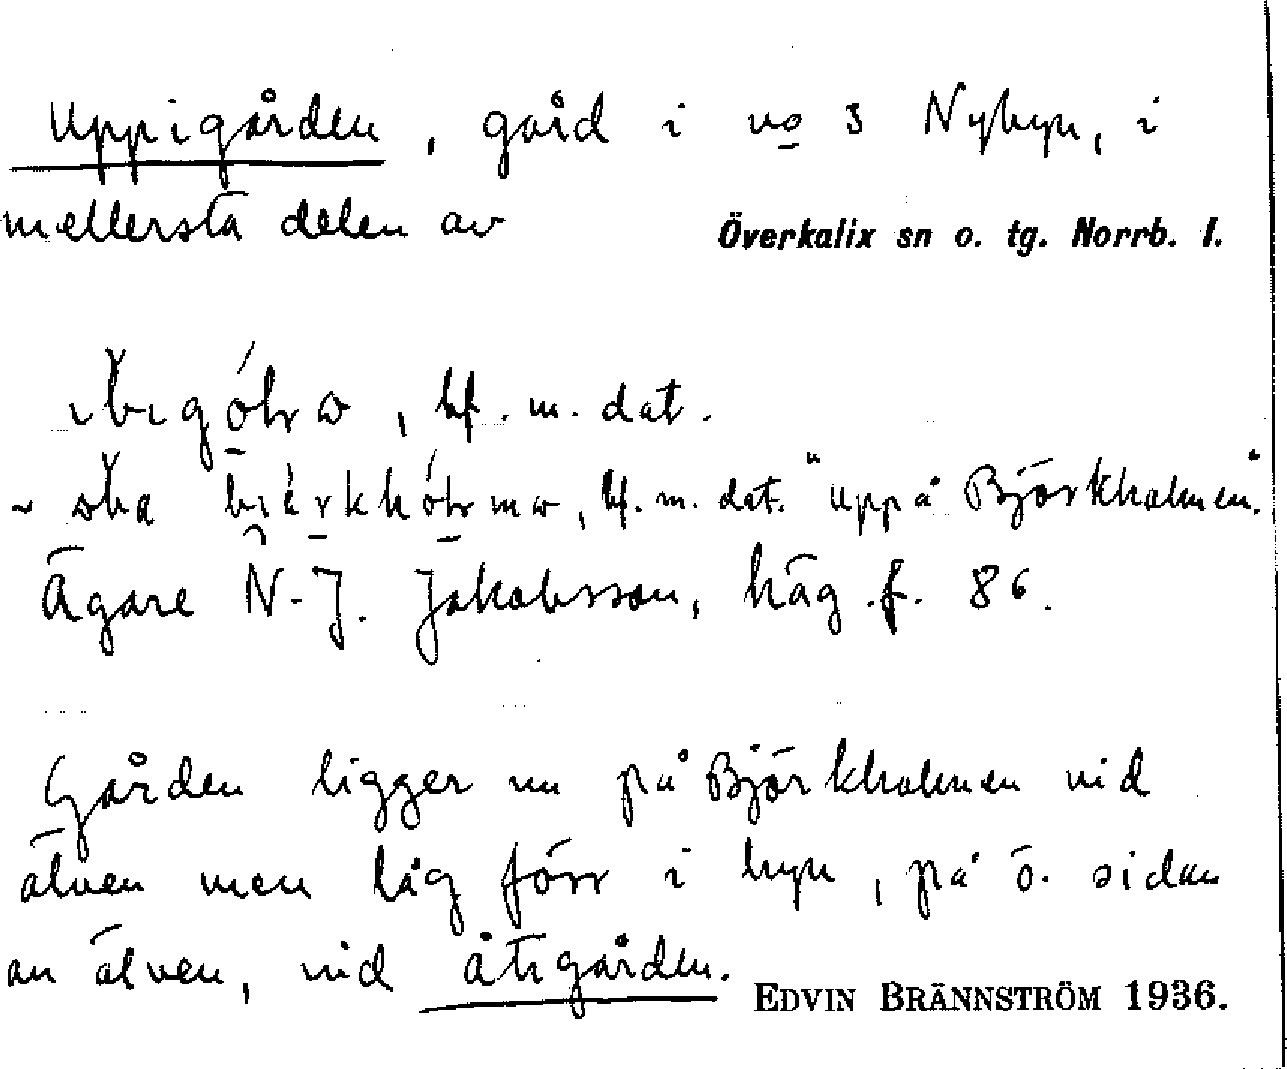 Uppigården, gård i no 3 Nybyn, i
mellersta delen av
Överkalix sn o. tg. Norrb. l.
, bf. m. dat.
~ , bf. m. dat. "uppå Björkholmen".
Ägare N. J. Jakobsson, häg. f. 86.
Gården ligger nu på Björkholmen vid
älven men låg förr i byn, på ö. sidan
av älven, vid åtigården.
EDVIN BRÄNNSTRÖM 1936.